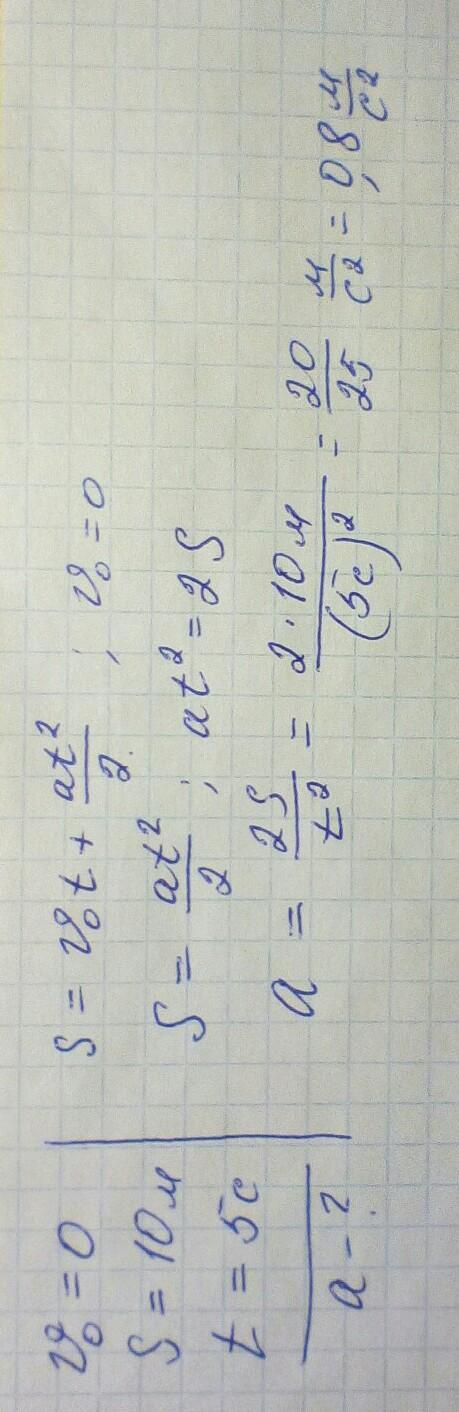 v₀ = 0
S = 10 м
t = 5 с
a - ?
S = v₀t + at²/2 ; v₀ = 0
S = at²/2 ; at² = 2S
a = 2S/t² = 2·10 м/(5с)² = 20/25 м/с² = 0,8 м/с²